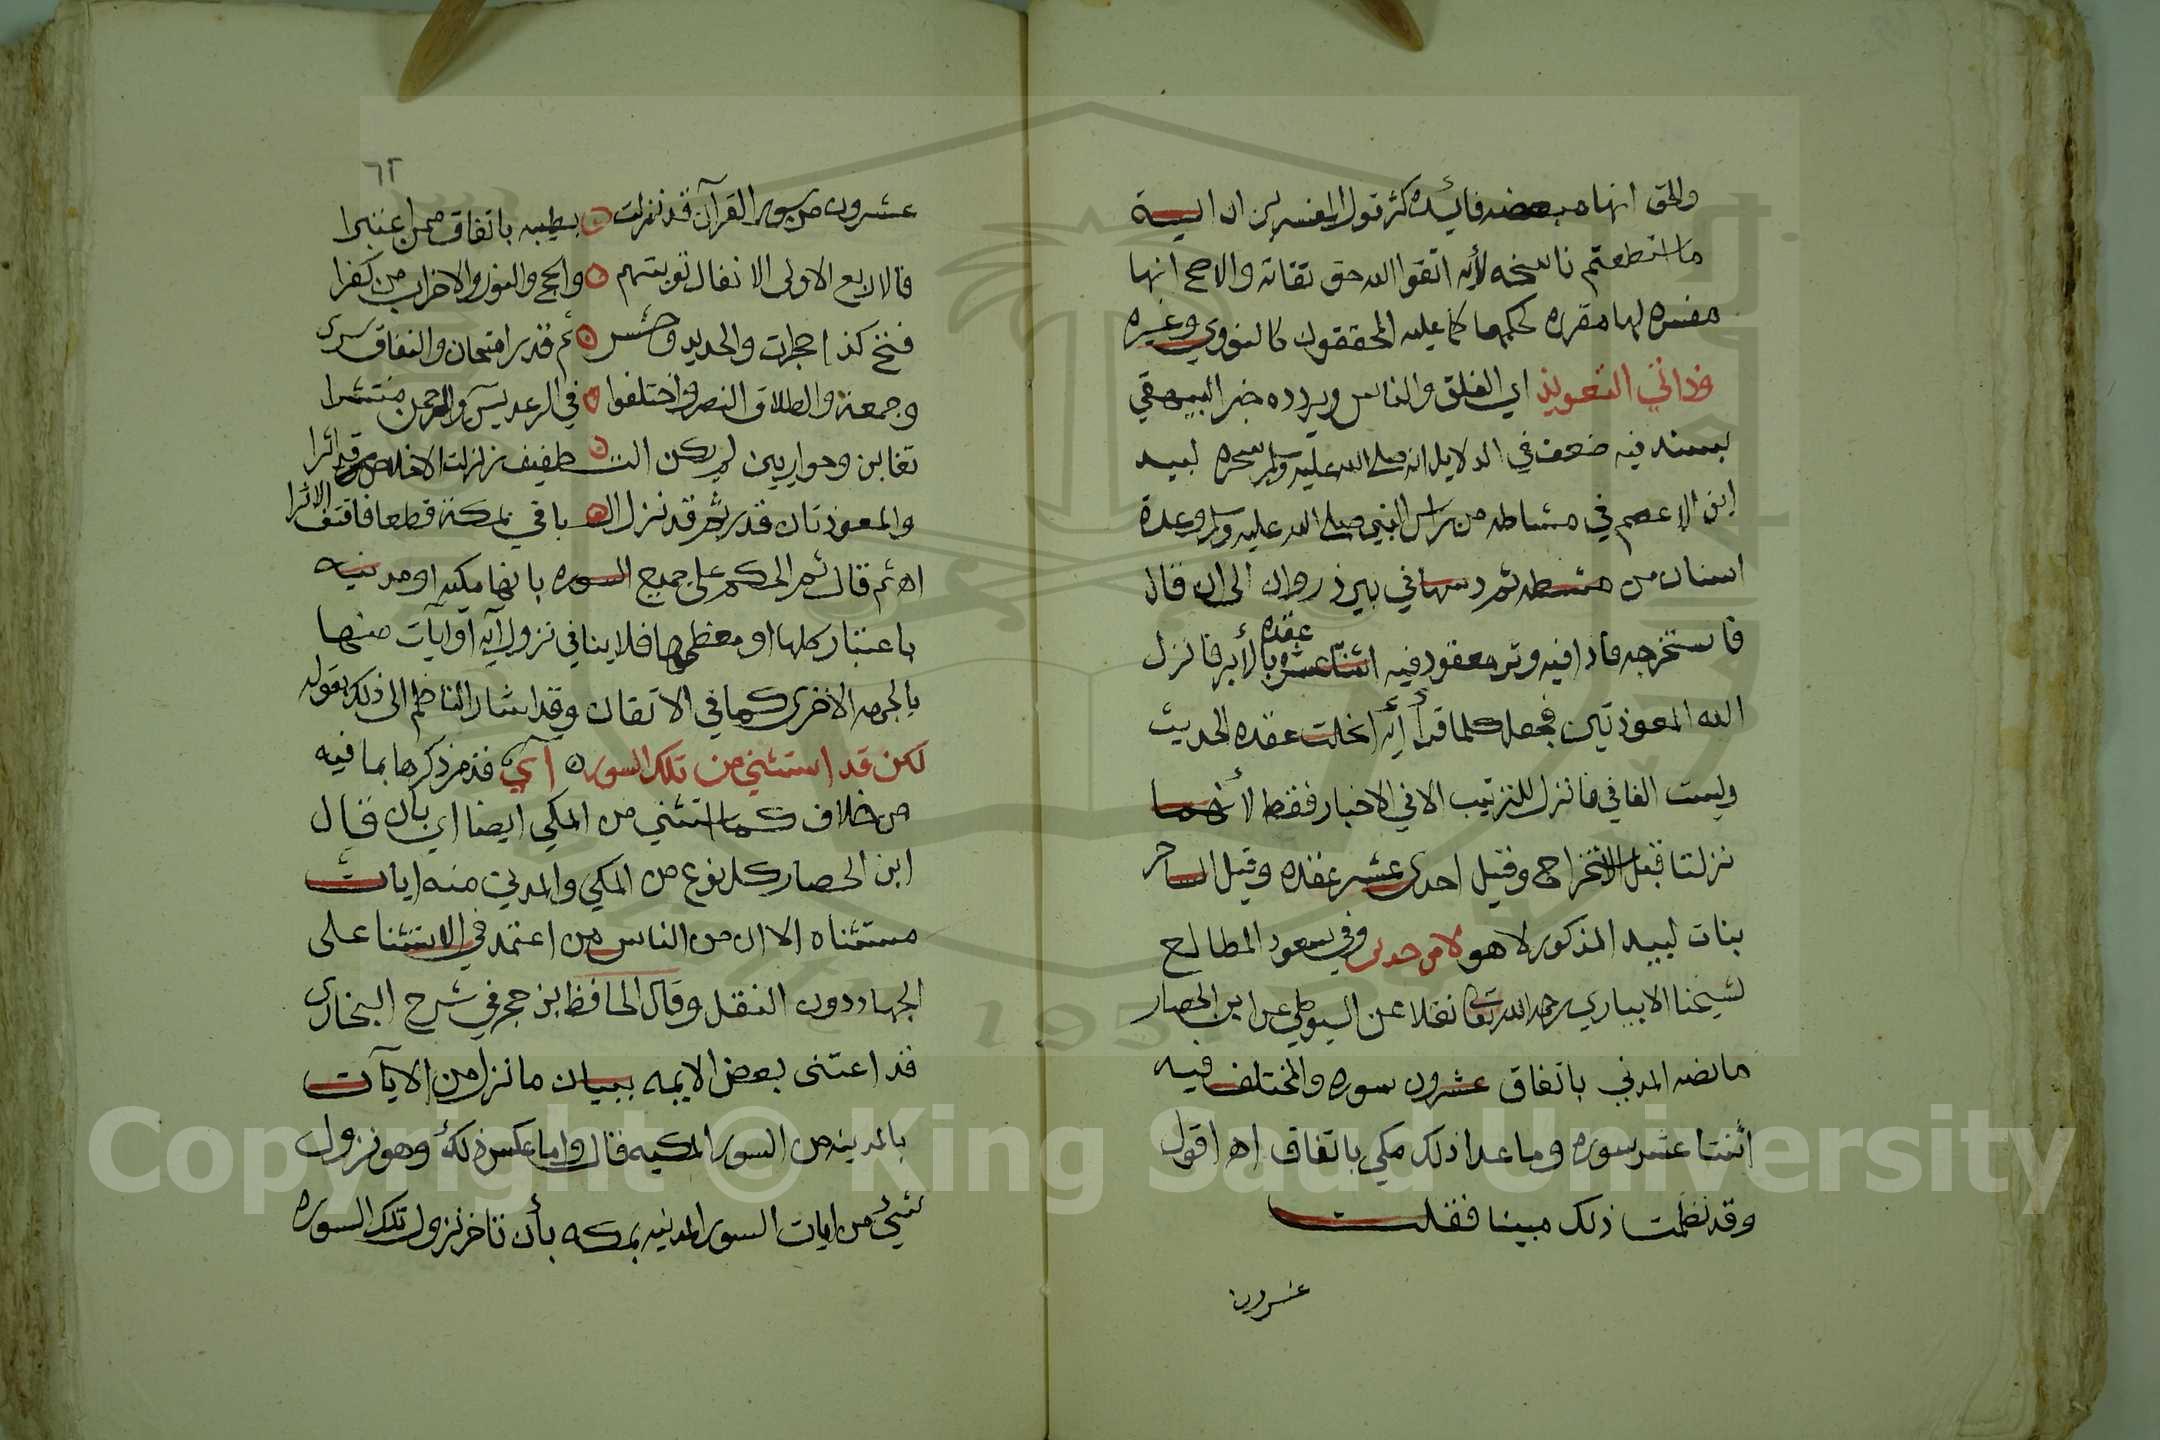 والحق انها مبعضه فائيده كثر قول المفسرين ان اية
ما استطعتم ناسخه لأيه اتقوا الله حق تقاته والاصح انها
مفسره لها مقرره لحكمها كما عليه المحققون كالنووي وغيره
وذاتي التعويذ اي الفلق والناس ويرده خبر البيهقي
بسند فيه ضعف في الدلايل انه صلى الله عليه وسلم سحره لبيد
ابن الاعصم في مشاطه من راس النبي صلى الله عليه وسلم وعدة
اسنان من مشطه ثم دسها في بير ذروان الى ان قال
فاستخرجه فاذا فيه وتر معقود فيه اثنتا عشره عقده بالأبر فانزل
الله المعوذتين فجعل كلما قرأ أيه انحلت عقده الحديث
وليست الفا في فانزل للترتيب الا في الاخبار فقط لأنهما
نزلتا قبل الاستخراج وقيل احدى عشر عقده وقيل الساحر
بنات لبيد المذكور لا هو وفي سعود المطالع
لشيخنا الابياري رحمه الله تعالى نقلا عن السيوطي عن ابن الحصار
ما نصه المدني باتفاق عشرون سوره والمختلف فيه
اثنتا عشر سوره وما عدا ذلك مكي باتفاق اه اقول
وقد نظمت ذلك مبينا فقلت
عشرون
٦٢
عشرون من سور القرآن قد نزلت ٥ بطيبه باتفاق ممن اعتبرا
فالاربع الاولى الانفال توبتهم ٥ والحج والنور والاحزاب من كفرا
فتح كذا حجرات والحديد وحشر ٥ ثم قدر امتحان والنفاق سرى
وجمعة والطلاق النصر واختلفوا ٥ في الرعد يس والرحمن منتشرا
تغابن وحواريين لم يكن الت ٥ طفيف زلزلت الاخلاص قد اثرا
والمعوذتان قدر ثم قد نزل ال ٥ باقي بمكة قطعا فاقتف الاثرا
اه ثم قال ثم الحكم على جميع السوره بانها مكيه او مدنيه
باعتبار كلها او معظمها فلا ينافي نزول آيه او آيات منها
بالجهه الاخرى كما في الاتقان وقد اشار الناظم الى ذلك بقوله
لكن قد استثني من تلك السور ٥ آي قد مر ذكرها بما فيه
من خلاف كما استثني من المكي ايضا اي بان قال
ابن الحصار كل نوع من المكي والمدني منه ايات
مستثناه الا ان من الناس من اعتمد في الاستثنا على
الاجتهاد دون النقل وقال الحافظ بن حجر في شرح البخاري
قد اعتنى بعض الايمه ببيان ما نزل من الايآت
بالمدينه من السور المكيه قال واما عكس ذلك وهو نزول
شيئ من ايات السور المدنيه بمكه بأن تاخر نزول تلك السوره
Copyright © King Saud University
1957